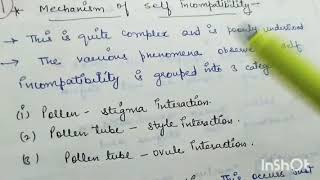 Mechanism of Self Incompatibility -
→ This is quite complex and is poorly understood
→ The various phenomena observe self
Incompatibility is grouped into 3
(1) Pollen - stigma Interaction.
(2) Pollen tube - style Interaction.
(3) Pollen tube - ovule Interaction.
This occurs just
InShOt